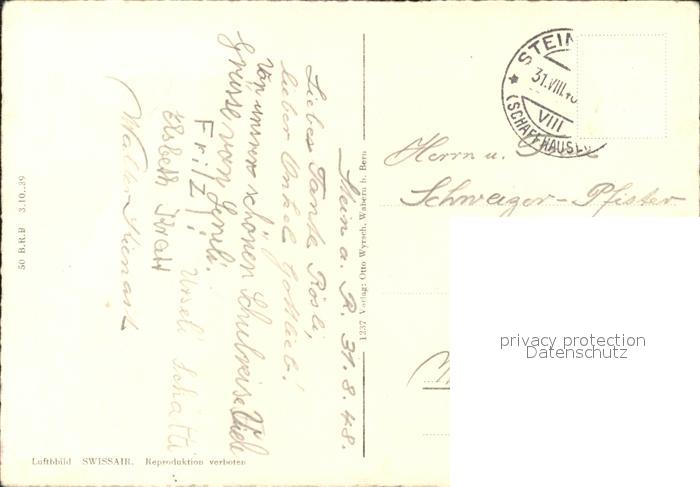 Stein a. R. 31.8.48.
Liebes Tante Rösli,
lieber Onkel Gottlieb!
Von unsrer schönen Schulreise Viele
Grüsse von
Fritz!
Elsbeth
Urseli Schätti
Walter Kienast
1237 Verlag: Otto Wyrsch, Wabern b. Bern
50 B.R.B 3.10.39
Luftbild SWISSAIR. Reproduktion verboten
STEIN
31.VIII.48
VIII
(SCHAFFHAUSEN)
Herrn u. Frau
Schweizer-Pfister
privacy protection
Datenschutz